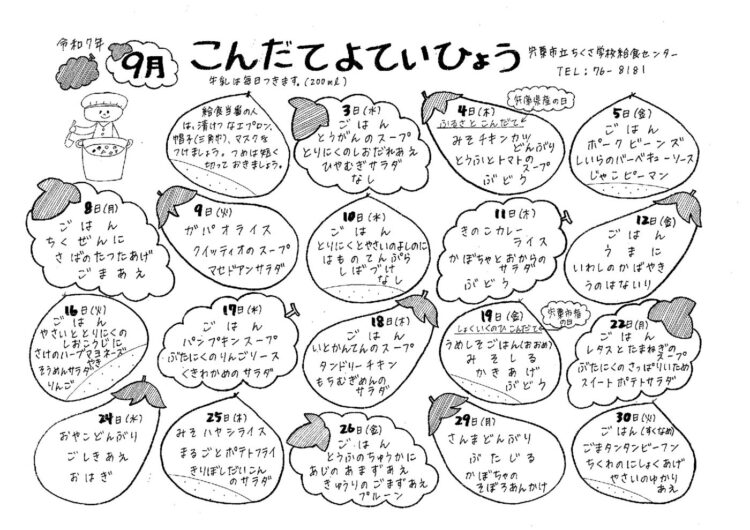 令和7年
9月
こんだてよていひょう
宍粟市立ちくさ学校給食センター
TEL:76-8181
牛乳は毎日つきます。(200ml)
給食当番の人
は、清けつなエプロン、
帽子(三角巾)、マスクを
つけましょう。つめは短く
切っておきましょう。
3日(水)
ごはん
とうがんのスープ
とりにくのしおだれあえ
ひやむぎサラダ
なし
兵庫県産の日
4日(木)
ふるさとこんだて
みそチキンカツ
どんぶり
とうふとトマトの
スープ
ぶどう
5日(金)
ごはん
ポークビーンズ
しいらのバーベキューソース
じゃこピーマン
8日(月)
ごはん
ちくぜんに
さばのたつたあげ
ごまあえ
9日(火)
ガパオライス
クイッティオのスープ
マセドアンサラダ
10日(水)
ごはん
とりにくとやさいのよしのに
はものてんぷら
しばづけ
なし
11日(木)
きのこカレー
ライス
かぼちゃとおからの
サラダ
ぶどう
12日(金)
ごはん
うまに
いわしのかばやき
うのはないり
16日(火)
ごはん
やさいととりにくの
しおこうじに
さけのハーブマヨネーズ
やき
そうめんサラダ
りんご
17日(水)
ごはん
パンプキンスープ
ぶたにくのりんごソース
くきわかめのサラダ
18日(木)
ごはん
いとかんてんのスープ
タンドリーチキン
もちむぎめんの
サラダ
宍粟市産
の日
19日(金)
しょくいくのひこんだて
うめしそごはん(おおめ)
みそしる
かきあげ
ぶどう
22日(月)
ごはん
レタスとたまねぎの
スープ
ぶたにくのさっぱりいため
スイートポテトサラダ
24日(水)
おやこどんぶり
ごしきあえ
おはぎ
25日(木)
みそハヤシライス
まるごとポテトフライ
きりぼしだいこん
のサラダ
26日(金)
ごはん
とうふのちゅうかに
あじのあまずあえ
きゅうりのごまずあえ
プルーン
29日(月)
さんまどんぶり
ぶたじる
かぼちゃの
そぼろあんかけ
30日(火)
ごはん(すくなめ)
ごまタンタンビーフン
ちくわのにしょくあげ
やさいのゆかり
あえ